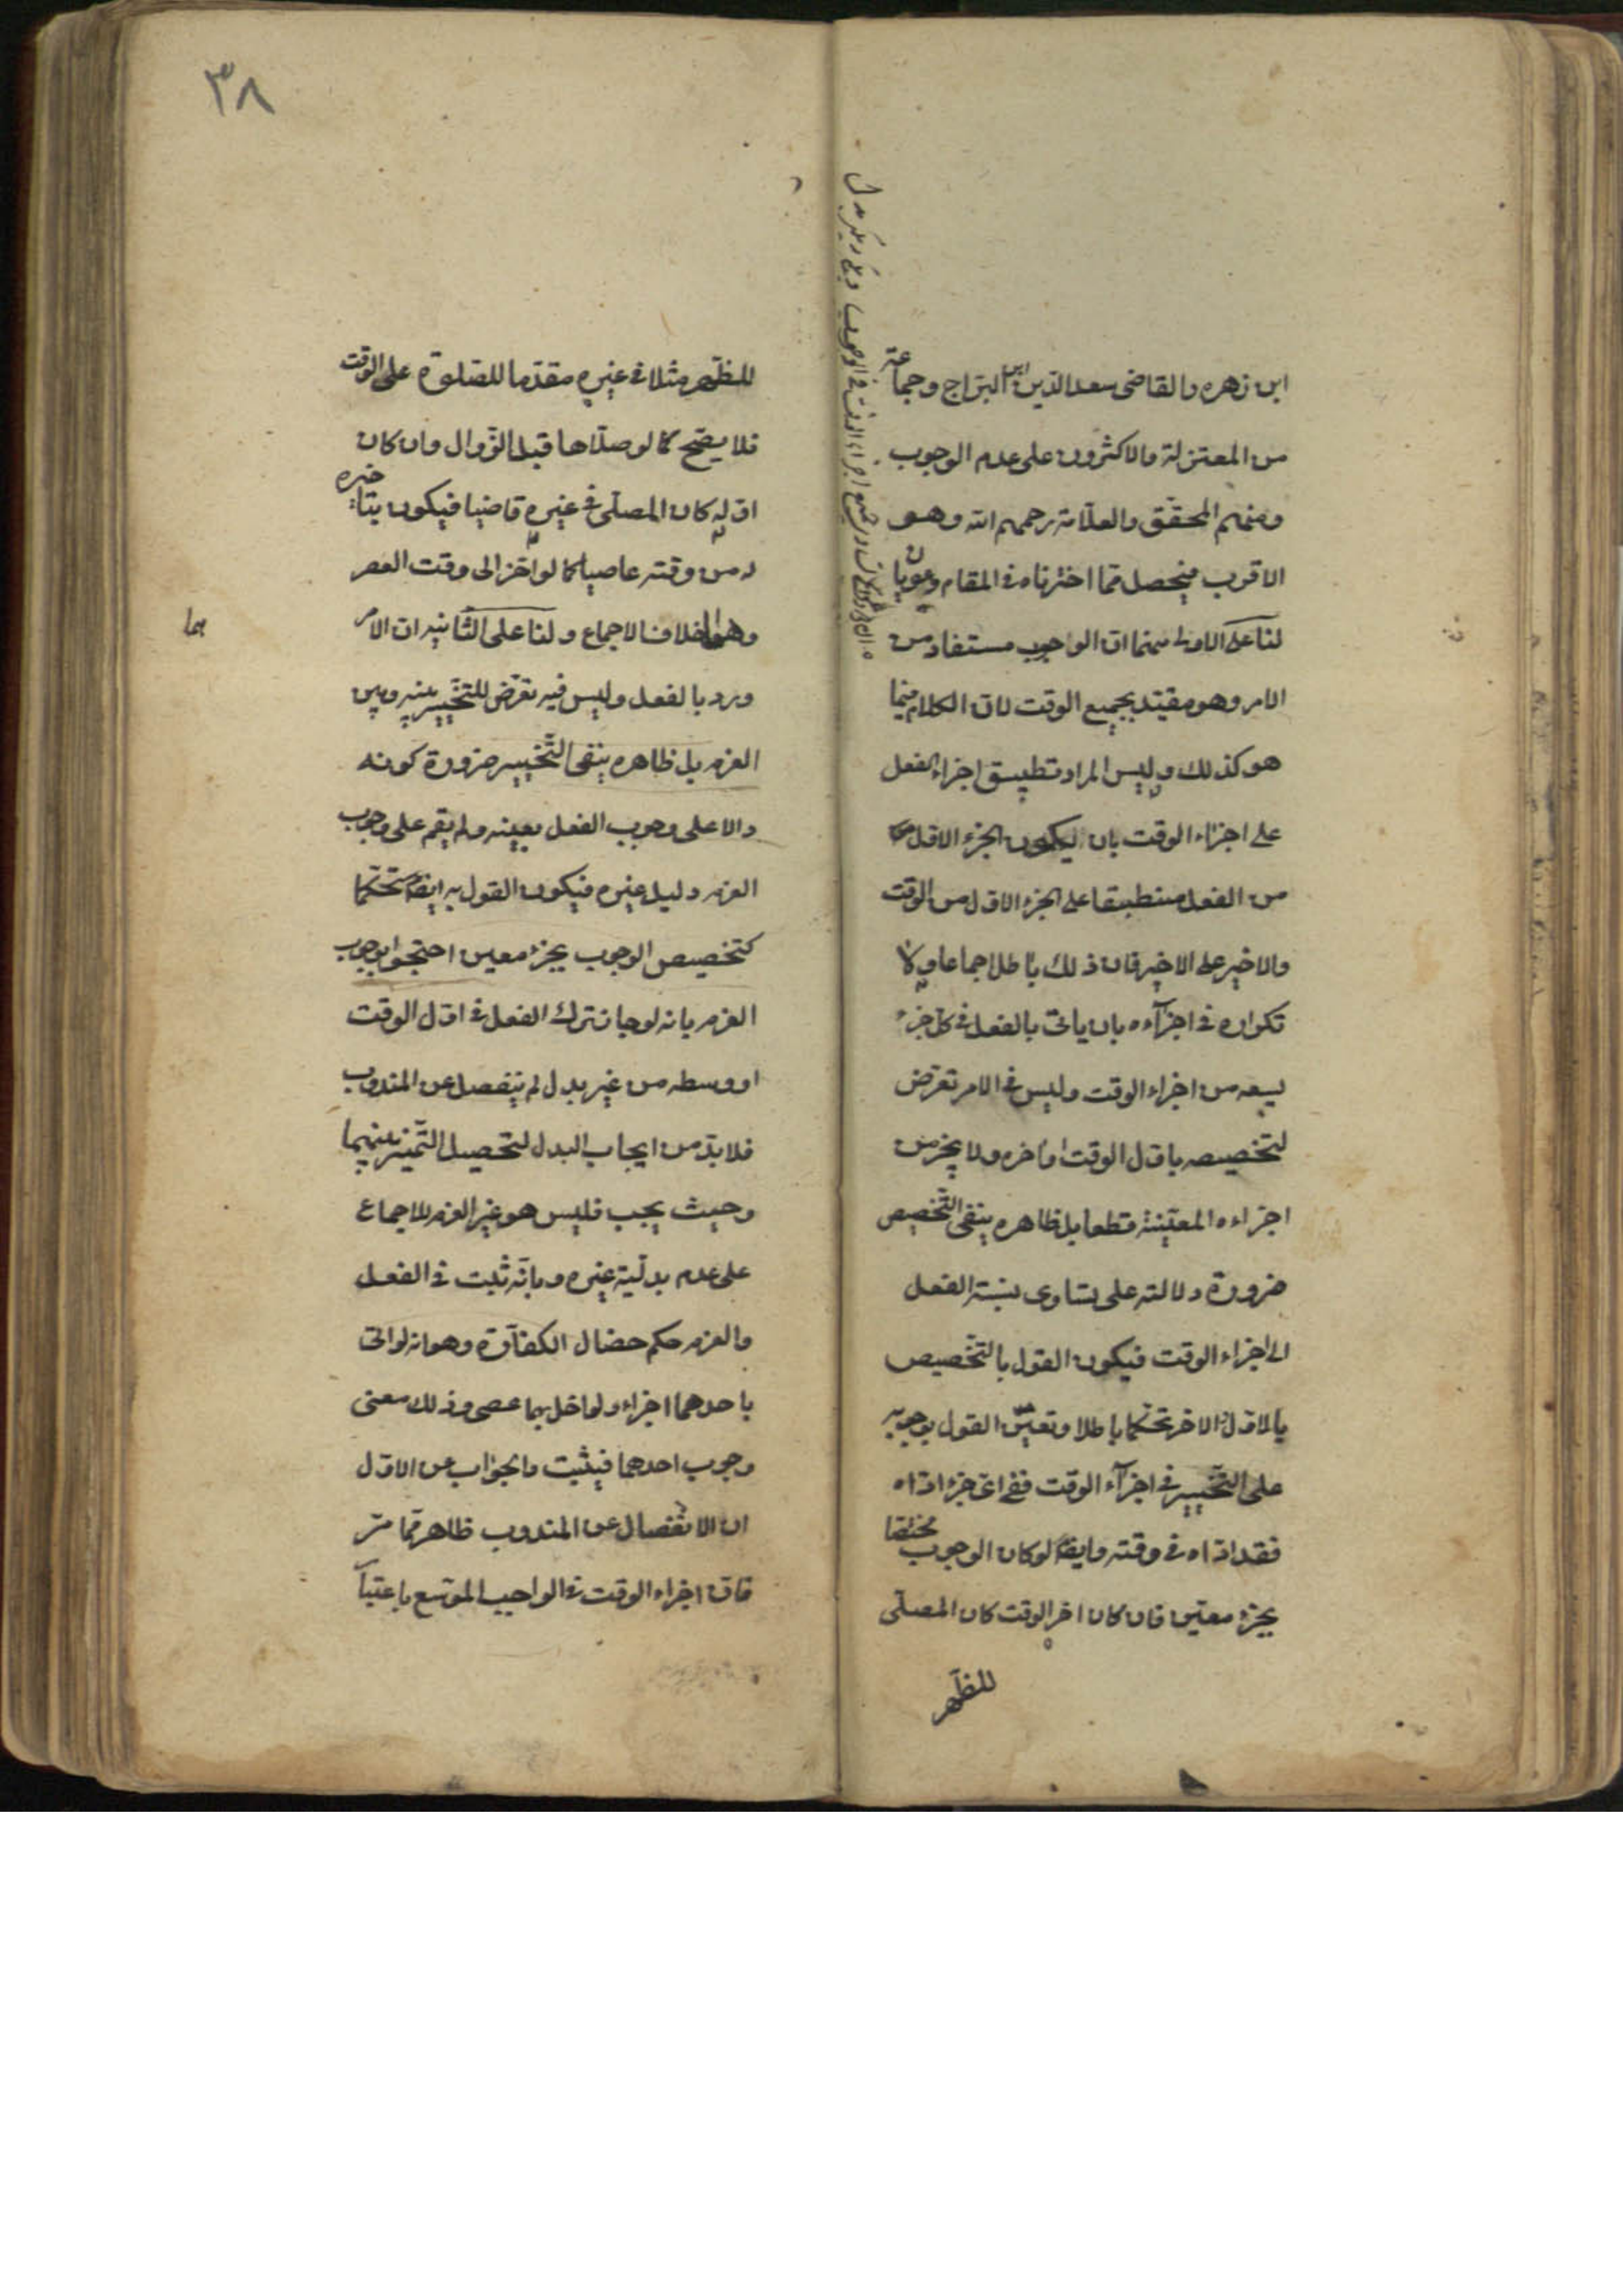 ابن زهره والقاضى سعد الدين ابن البراج وجماعة
من المعتزلة والاكثرون على عدم الوجوب
ومنهم المحقق والعلامة رحمهم الله وهو
الاقرب فيحصل مما اخترناه فى المقام دعويان
لنا على الاولى منهما ان الوجوب مستفاد من
الامر وهو مقيد بجميع الوقت لان الكلام فيما
هو كذلك وليس المراد تطبيق اجزاء الفعل
على اجزاء الوقت بان يكون الجزء الاول
من الفعل منطبقا على الجزء الاول من الوقت
والاخير على الاخير فان ذلك باطل اجماعا ولا
تكراره فى اجزآءه بان ياتى بالفعل فى كل جزء
يسعه من اجزاء الوقت وليس فى الامر تعرض
لتخصيصه باول الوقت او اخره ولا بجزء من
اجزاءه المعينة قطعا بل ظاهره ينفى التخصيص
ضرورة دلالته على تساوى نسبة الفعل
الى اجزاء الوقت فيكون القول بالتخصيص
بالاول او الاخر تحكما باطلا وتعين القول بوجوبه
على التخيير فى اجزآء الوقت ففى اى جزء اداه
فقد اداه فى وقته وايضا لو كان الوجوب مختصا
بجزء معين فان كان اخر الوقت كان المصلى
للظهر
٣٨
للظهر مثلا فى غيره مقدما للصلوة على الوقت
فلا يصح كما لو صلاها قبل الزوال وان كان
اوله كان المصلى فى غيره قاضيا فيكون بتاخيره
له من وقته عاصيا كما لو اخر الى وقت العصر
وهما خلاف الاجماع ولنا على الثانيه ان الامر
هما
ورد بالفعل وليس فيه تعرض للتخيير بينه وبين
العزم بل ظاهره ينفى التخيير ضرورة كونه
دالا على وجوب الفعل بعينه ولم يقم على وجوب
العزم دليل غيره فيكون القول به ايضا تحكما
كتخصيص الوجوب بجزء معين احتجوا بوجوب
العزم بانه لو جاز ترك الفعل فى اول الوقت
او وسطه من غير بدل لم ينفصل عن المندوب
فلا بد من ايجاب البدل لتحصيل التميز بينهما
وحيث يجب فليس هو غير العزم للاجماع
على عدم بدلية غيره وبانه ثبت فى الفعل
والعزم حكم خصال الكفآرة وهو انه لو اتى
باحدهما اجزاء ولو اخل بهما عصى وذلك معنى
وجوب احدهما فيثبت والجواب عن الاول
ان الانفصال عن المندوب ظاهر مما مر
فان اجزاء الوقت فى الواجب الموسع باعتبا